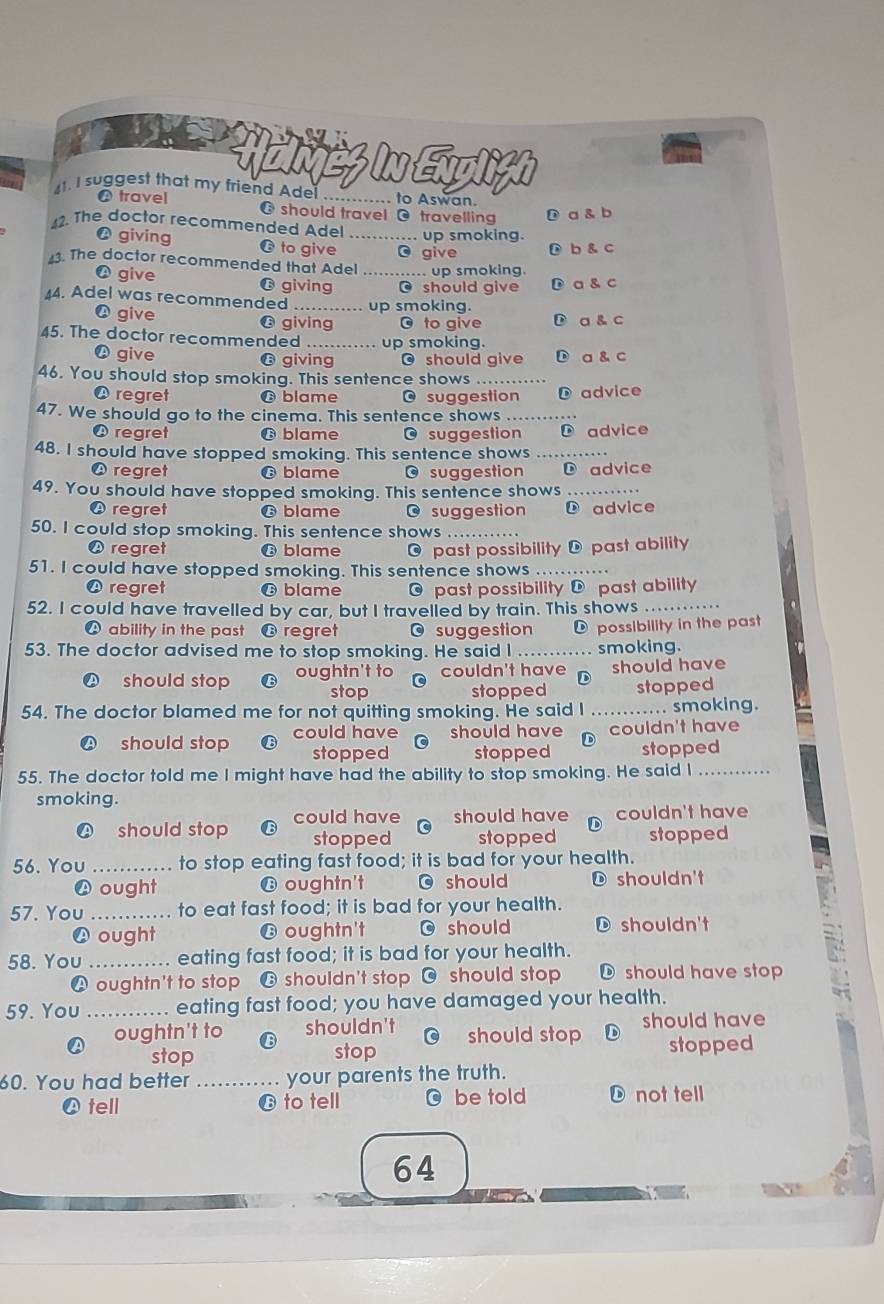 Holmes In English
41. I suggest that my friend Adel ............ to Aswan.
A travel B should travel C travelling D a & b
42. The doctor recommended Adel ............ up smoking.
A giving B to give C give D b & c
43. The doctor recommended that Adel ............ up smoking.
A give B giving C should give D a & c
44. Adel was recommended ............ up smoking.
A give B giving C to give D a & c
45. The doctor recommended ............ up smoking.
A give B giving C should give D a & c
46. You should stop smoking. This sentence shows ............
A regret B blame C suggestion D advice
47. We should go to the cinema. This sentence shows ............
A regret B blame C suggestion D advice
48. I should have stopped smoking. This sentence shows ............
A regret B blame C suggestion D advice
49. You should have stopped smoking. This sentence shows ............
A regret B blame C suggestion D advice
50. I could stop smoking. This sentence shows ............
A regret B blame C past possibility D past ability
51. I could have stopped smoking. This sentence shows ............
A regret B blame C past possibility D past ability
52. I could have travelled by car, but I travelled by train. This shows ............
A ability in the past B regret C suggestion D possibility in the past
53. The doctor advised me to stop smoking. He said I ............ smoking.
A should stop B oughtn't to stop C couldn't have stopped D should have stopped
54. The doctor blamed me for not quitting smoking. He said I ............ smoking.
A should stop B could have stopped C should have stopped D couldn't have stopped
55. The doctor told me I might have had the ability to stop smoking. He said I ............
smoking.
A should stop B could have stopped C should have stopped D couldn't have stopped
56. You ............ to stop eating fast food; it is bad for your health.
A ought B oughtn't C should D shouldn't
57. You ............ to eat fast food; it is bad for your health.
A ought B oughtn't C should D shouldn't
58. You ............ eating fast food; it is bad for your health.
A oughtn't to stop B shouldn't stop C should stop D should have stop
59. You ............ eating fast food; you have damaged your health.
A oughtn't to stop B shouldn't stop C should stop D should have stopped
60. You had better ............ your parents the truth.
A tell B to tell C be told D not tell
64